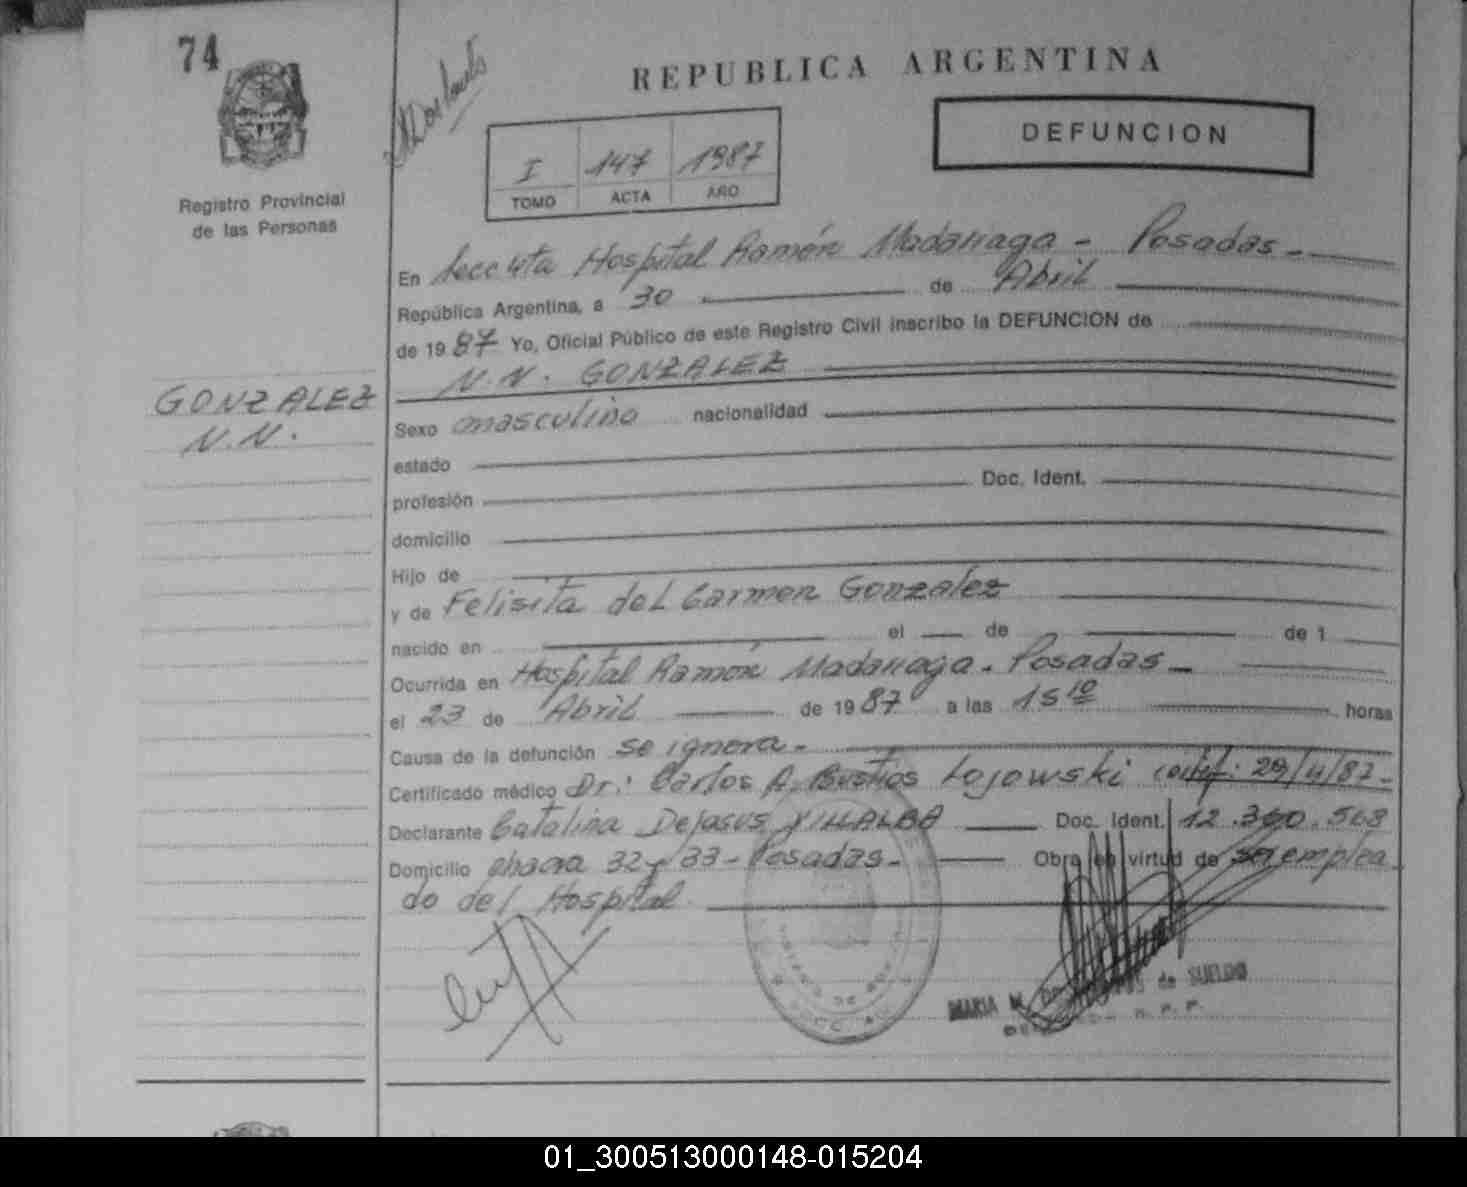 74
REPUBLICA ARGENTINA
DEFUNCION
I 147 1987
TOMO ACTA AÑO
Registro Provincial
de las Personas
En Secc 4ta Hospital Ramón Madariaga - Posadas -
República Argentina, a 30 de Abril
de 1987 Yo, Oficial Público de este Registro Civil inscribo la DEFUNCION de
N.N. GONZALEZ
GONZALEZ
N.N.
Sexo masculino nacionalidad
estado
profesión Doc. Ident.
domicilio
Hijo de
y de Felisita del Carmen Gonzalez
nacido en el de de 1
Ocurrida en Hospital Ramón Madariaga - Posadas -
el 23 de Abril de 1987 a las 15 10 horas
Causa de la defunción se ignora -
Certificado médico Dr: Carlos A. Bustos Lojowski certif. 29/4/87-
Declarante Catalina Dejesus VILLALBA Doc. Ident. 12.360.568
Domicilio chacra 32 y 33 - Posadas - Obra en virtud de ser emplea
do del Hospital
MARIA M. de SUELDO
01_300513000148-015204